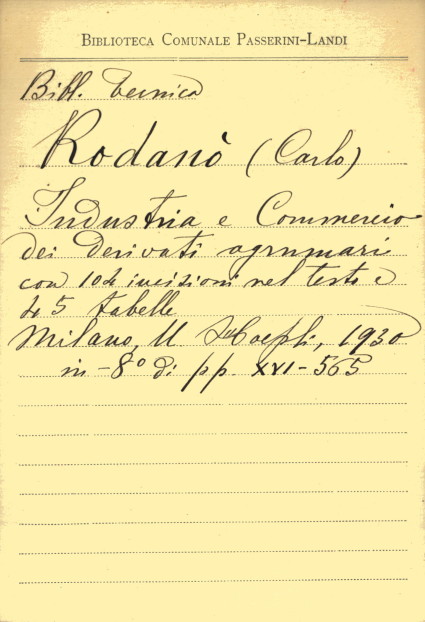 BIBLIOTECA COMUNALE PASSERINI-LANDI
Bibl. Tecnica
Rodanò (Carlo)
Industria e Commercio
dei Derivati agrumari
con 104 incisioni nel testo e
45 tabelle
Milano, U Hoepli, 1930
in-8° di pp. XVI-565